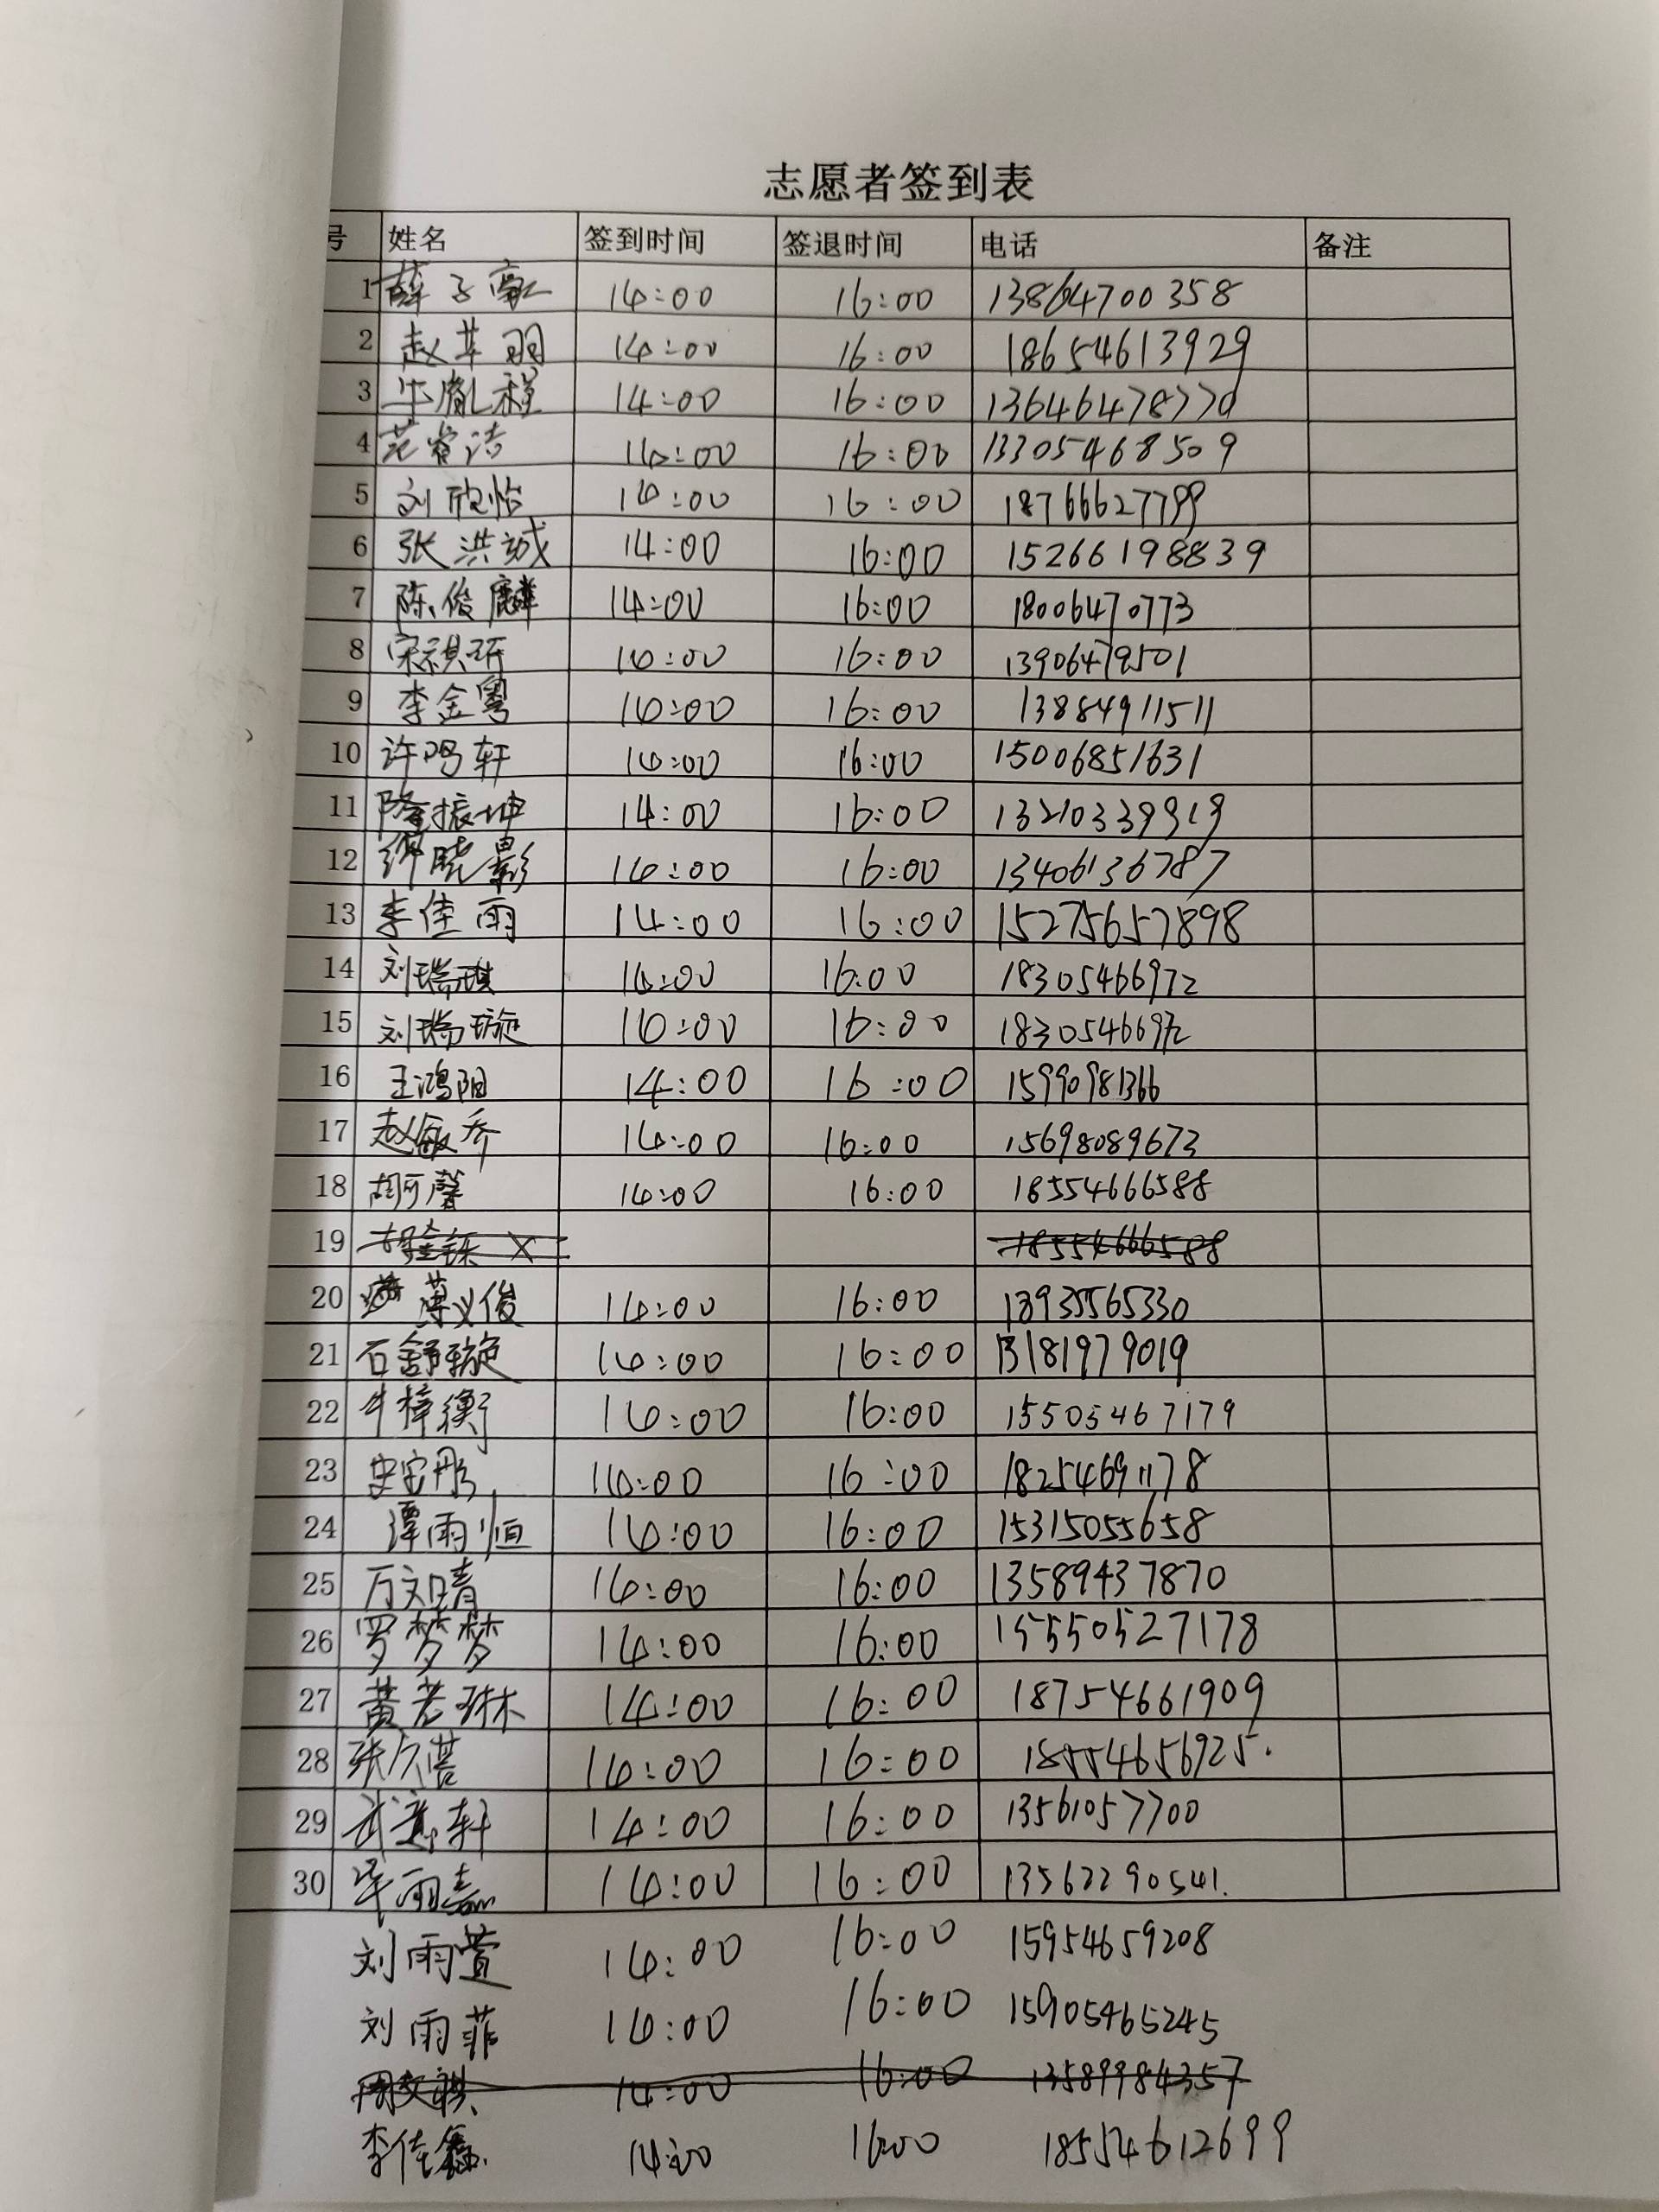 志愿者签到表
号 姓名 签到时间 签退时间 电话 备注
1 薛子 14:00 16:00 13864700358
2 赵苹羽 14:00 16:00 18654613929
3 牛胤程 14:00 16:00 13646478770
4 范睿洁 14:00 16:00 13305468509
5 刘欣怡 14:00 16:00 18766627799
6 张洪城 14:00 16:00 15266198839
7 陈俊麟 14:00 16:00 18006470773
8 宋祺研 14:00 16:00 13906479501
9 李金粤 14:00 16:00 13884911511
10 许鸣轩 14:00 16:00 15006851631
11 隆振坤 14:00 16:00 13210339919
12 晓影 14:00 16:00 13406136787
13 李佳雨 14:00 16:00 15275657898
14 刘瑞琪 14:00 16:00 18305466972
15 刘瑞璇 14:00 16:00 18305466972
16 王鸿阳 14:00 16:00 15990981366
17 赵敏乔 14:00 16:00 15698089673
18 胡可馨 14:00 16:00 18554666588
19 18554666588
20 薄义俊 14:00 16:00 18935565330
21 石舒璇 14:00 16:00 13181979019
22 牛梓衡 14:00 16:00 15505467179
23 史宝彤 14:00 16:00 18254691178
24 谭雨恒 14:00 16:00 15315055658
25 万文晴 14:00 16:00 13589437870
26 罗梦梦 14:00 16:00 15550527178
27 黄若琳 14:00 16:00 18754661909
28 张久蕓 14:00 16:00 18554656925.
29 武意轩 14:00 16:00 13561057700
30 毕雨嘉 14:00 16:00 13562290541.
刘雨萱 14:00 16:00 15954659208
刘雨菲 14:00 16:00 15905465245
周文祺 14:00 16:00 13589984357
李佳鑫 14:00 16:00 18554612699